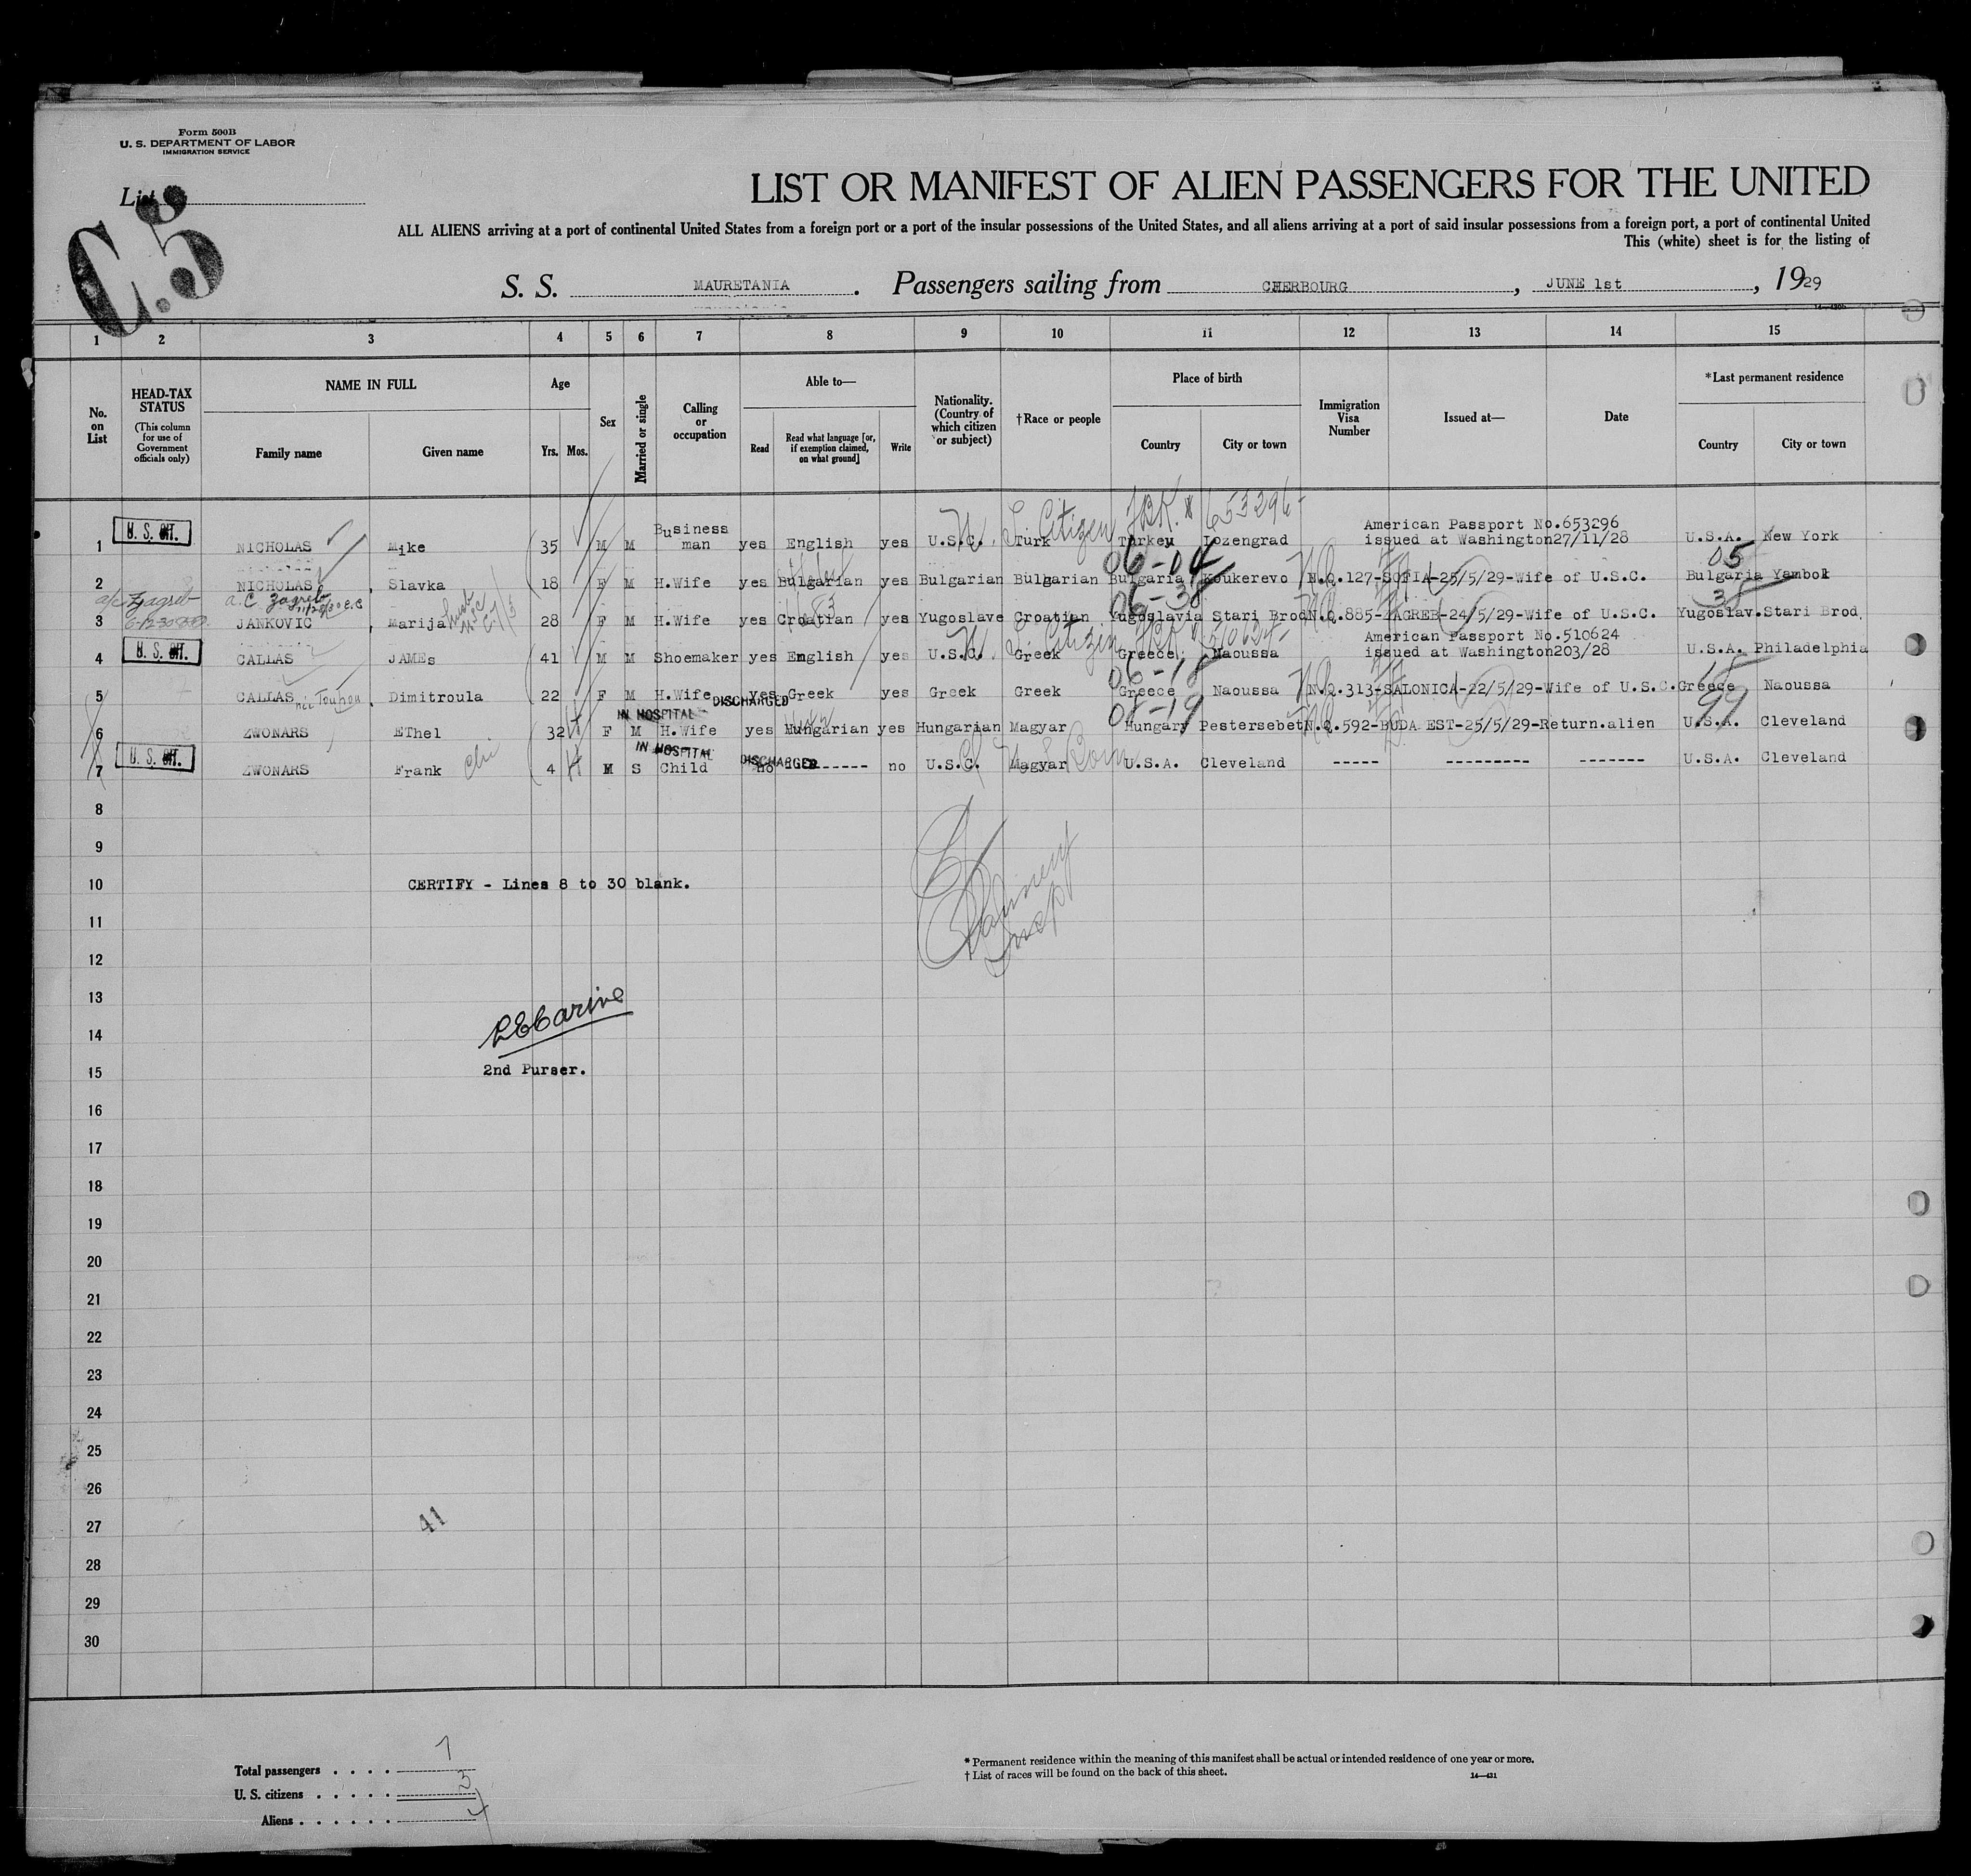 Form 500B
U. S. DEPARTMENT OF LABOR
IMMIGRATION SERVICE
List
C.5
LIST OR MANIFEST OF ALIEN PASSENGERS FOR THE UNITED
ALL ALIENS arriving at a port of continental United States from a foreign port or a port of the insular possessions of the United States, and all aliens arriving at a port of said insular possessions from a foreign port, a port of continental United
This (white) sheet is for the listing of
S. S. MAURETANIA . Passengers sailing from CHERBOURG , JUNE 1st , 1929
1 2 3 4 5 6 7 8 9 10 11 12 13 14 15
No. on List
HEAD-TAX STATUS (This column for use of Government officials only)
NAME IN FULL
Family name Given name
Age
Yrs. Mos.
Sex
Married or single
Calling or occupation
Able to—
Read Read what language [or, if exemption claimed, on what ground] Write
Nationality. (Country of which citizen or subject)
†Race or people
Place of birth
Country City or town
Immigration Visa Number
Issued at—
Date
*Last permanent residence
Country City or town
U. S. Citizen 653296
1 NICHOLAS Mike 35 M M Business man yes English yes U.S.C. Turk Turkey Lozengrad American Passport No.653296 issued at Washington27/11/28 U.S.A. New York
06-04 05
2 NICHOLAS, Slavka 18 F M H.Wife yes Bulgarian yes Bulgarian Bulgarian Bulgaria Koukerevo N.Q.127-SOFIA-25/5/29-Wife of U.S.C. Bulgaria Yambol
Zagreb a.c. Zagreb
06-38 38
3 JANKOVIC , Marija 28 F M H.Wife yes Croatian yes Yugoslave Croatian Yugoslavia Stari Brod N.Q.885-ZAGREB-24/5/29-Wife of U.S.C. Yugoslav. Stari Brod
U. S. Citizen 510624
4 CALLAS JAMEs 41 M M Shoemaker yes English yes U.S.C. Greek Greece Naoussa American Passport No.510624 issued at Washington203/28 U.S.A. Philadelphia
06-18 18
5 CALLAS, Dimitroula 22 F M H.Wife yes Greek yes Greek Greek Greece Naoussa N.Q.313-SALONICA-22/5/29-Wife of U.S.C. Greece Naoussa
IN HOSPITAL DISCHARGED
99
6 ZWONARS EThel 32 F M H.Wife yes Hungarian yes Hungarian Magyar Hungary Pestersebet N.Q.592-BUDA EST-25/5/29-Return.alien U.S.A. Cleveland
IN HOSPITAL DISCHARGED
7 ZWONARS Frank 4 M S Child no --------- no U.S.C. Magyar U.S.A. Cleveland ----- --------- ------- U.S.A. Cleveland
8
9
10 CERTIFY - Lines 8 to 30 blank.
11
12
13
14
15 2nd Purser.
16
17
18
19
20
21
22
23
24
25
26
27 41
28
29
30
Total passengers . . . . 7
U. S. citizens . . . . . 3
Aliens . . . . . . 4
* Permanent residence within the meaning of this manifest shall be actual or intended residence of one year or more.
† List of races will be found on the back of this sheet.
14—431